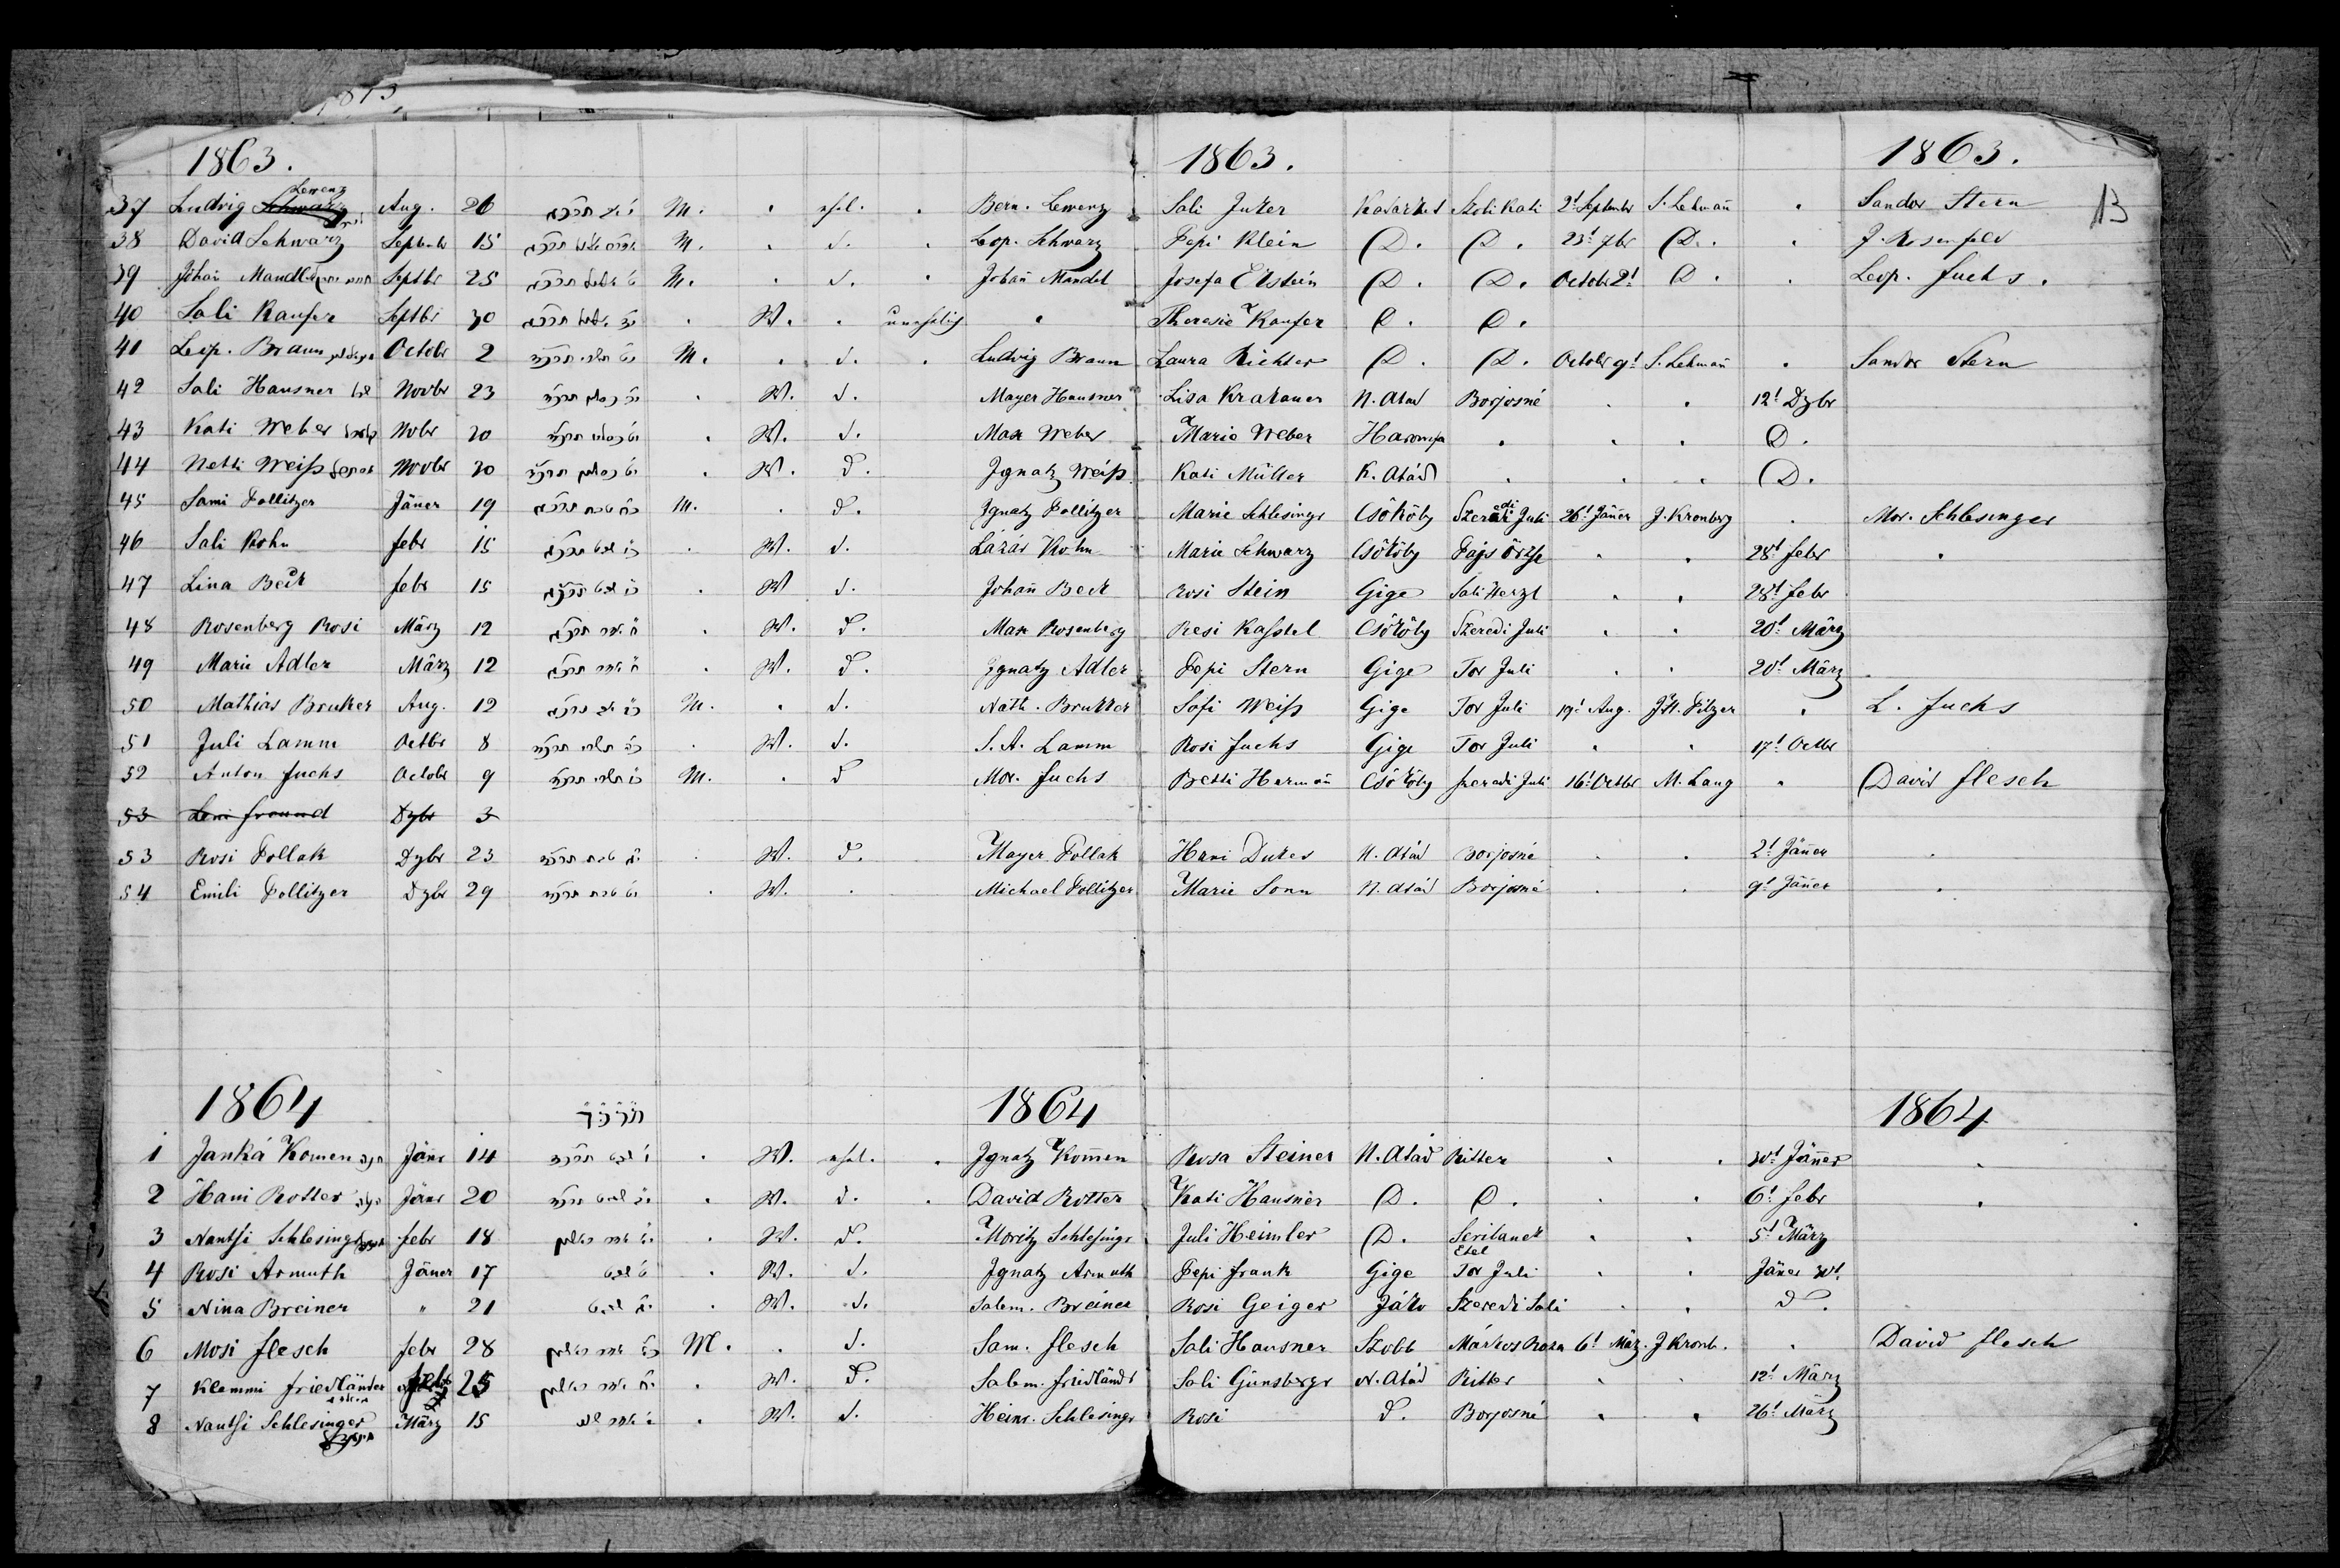 1813
1863. 1863. 1863.
13
Lewenz
37 Ludvig Schwarz Aug. 26 M. . ehel. . Bern. Lewenz Sali Juker Kadarkut Szoli Kati 2t September S. Lehmañ . Sandor Stern
38 David Schwarz Septbr 15 M. . d. . Leop. Schwarz Pepi Klein D. D. 23t 7br D. . J. Rosenfeld
39 Johañ Mandl Septbr 25 M. . d. . Johañ Mandel Josefa Ekstein D. D. October 2t D. . Leop. Fuchs.
40 Sali Kaufer Septbr 30 תרכ״ג . W. . unehelich . Theresie Kaufer D. D.
41 Leop. Braun Octobr 2 תשרי תרכ״ד M. . d. . Ludvig Braun Laura Richter D. D. October 9t S. Lehmañ . Sandor Stern
42 Sali Hausner Novbr 23 כסלו תרכ״ד . W. d. Mayer Hausner Lisa Krakauer N. Atad Borjosné . . 12t Dzbr
43 Kati Weber Nobr 30 כסלו תרכ״ד . W. d. Max Weber Marie Weber . . . D.
44 Netti Weiß Novbr 30 כסלו תרכ״ד . W. d. Ignatz Weiß Kati Müller K. Atád . . . D.
45 Sami Pollitzer Jäner 19 טבת תרכ״ג M. . d. Ignatz Pollitzer Marie Schlesingr Csököly Szeredi Juli 26t Jäner J. Kronberg . Mor. Schlesinger
46 Sali Kohn Febr 15 שבט תרכ״ג . W. d. Lázár Kohn Marie Schwarz Csököly Pajs Örzse . . 28t Febr .
47 Lina Beck Febr 15 שבט תרכ״ג . W d. Johañ Beck Rosi Stein Gige Sali Herzl . . 28t Febr
48 Rosenberg Rosi März 12 אדר תרכ״ג . W. d. Max Rosenberg Resi Kastel Csököly Szeredi Juli . . 20t März
49 Marie Adler März 12 אדר תרכ״ג . W. d. Ignatz Adler Pepi Stern Gige Tor Juli . . 20t März
50 Mathias Bruker Aug. 12 אב תרכ״ג M. . d. Nath. Brukker Sofi Weiß Gige Tor Juli 19t Aug. . L. Fuchs
51 Juli Lamm Octbr 8 תשרי תרכ״ד . W. d. S. A. Lamm Rosi Fuchs Gige Tor Juli . . 17t Octbr
52 Anton Fuchs Octobr 9 תשרי תרכ״ד M. . d Mor. Fuchs Betti Hermañ Csököly Szeredi Juli 16t Octbr M. Lang . David Flesch
53 Leni Freund Dzbr 3
53 Rosi Pollak Dzbr 23 טבת תרכ״ד . W. d. Mayer Pollak Hani Dukes N. Atád Borjosné . . 2t Jäner .
54 Emili Pollitzer Dzbr 29 טבת תרכ״ד . W. . Michael Pollitzer Marie Sonn N. Atád Borjosné . . 9t Jäner .
1864 תרכד 1864 1864
1 Janká Komen Jänr 14 שבט תרכ״ד . W. ehel. . Ignatz Kom̄en Rosa Steiner N. Atád Ritter . . 30t Jäner .
2 Hani Rotter Jänr 20 שבט תרכ״ד . W. d. . David Rotter Kati Hausner D. D. . . 6t Febr .
3 Nantsi Schlesingr Febr 18 אדר ראשון . W. d. Moritz Schlesingr Juli Heimler D. . . 5t März
Etel
4 Rosi Armuth Jäner 17 שבט . W. d. Ignatz Armuth Pepi Frank Gige Tor Juli . . Jäner 30t.
5 Nina Breiner " 21 שבט . W. d. Salem. Breiner Rosi Geiger Jáko Szeredi Sali . . d.
6 Mosi Flesch Febr 28 אדר ראשון M. . d. Sam. Flesch Sali Hausner Szobb Márkos Rosa 6t Mäz. J Kronb. . David Flesch
7 Klemmi Friedländer Febr 25 אדר ראשון . W. d. Salem. Friedländr Sali Günsbergr N. Atád Ritter . . 12t März
8 Nantsi Schlesinger März 15 אדר . W. d. Heinr. Schlesingr Rosi d. Borjosné . . 26t März